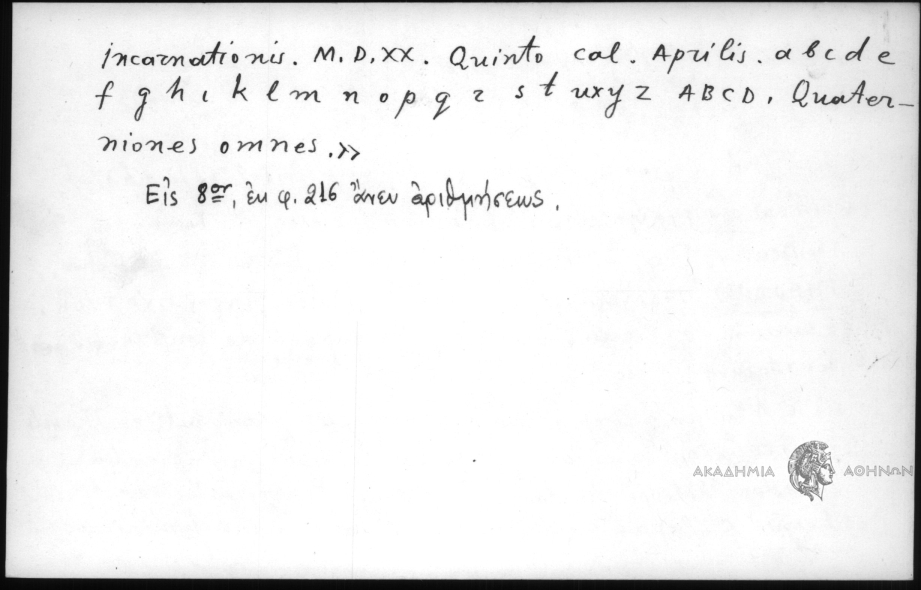 incarnationis. M.D.XX. Quinto cal. Aprilis. a b c d e
f g h i k l m n o p q r s t u x y z A B C D. Quater-
niones omnes.»
Εἰς 8ον, ἐκ φ. 216 ἄνευ ἀριθμήσεως.
ΑΚΑΔΗΜΙΑ ΑΘΗΝΩΝ